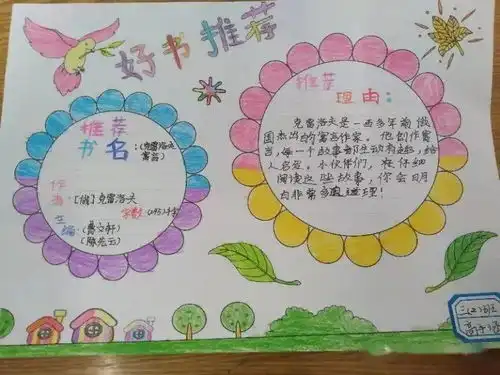 好书推荐
推荐
书名：(克雷洛夫
寓言)
作
者：[俄]克雷洛夫
字数：
主编：(曹文轩)
(陈先云)
推荐
理由：
克雷洛夫是一百多年前俄
国杰出的寓言作家。他创作寓
言，每一个故事都生动有趣，给
人启发，小伙伴们，在仔细
阅读这些故事，你会明
白非常多道理！
三(2)班